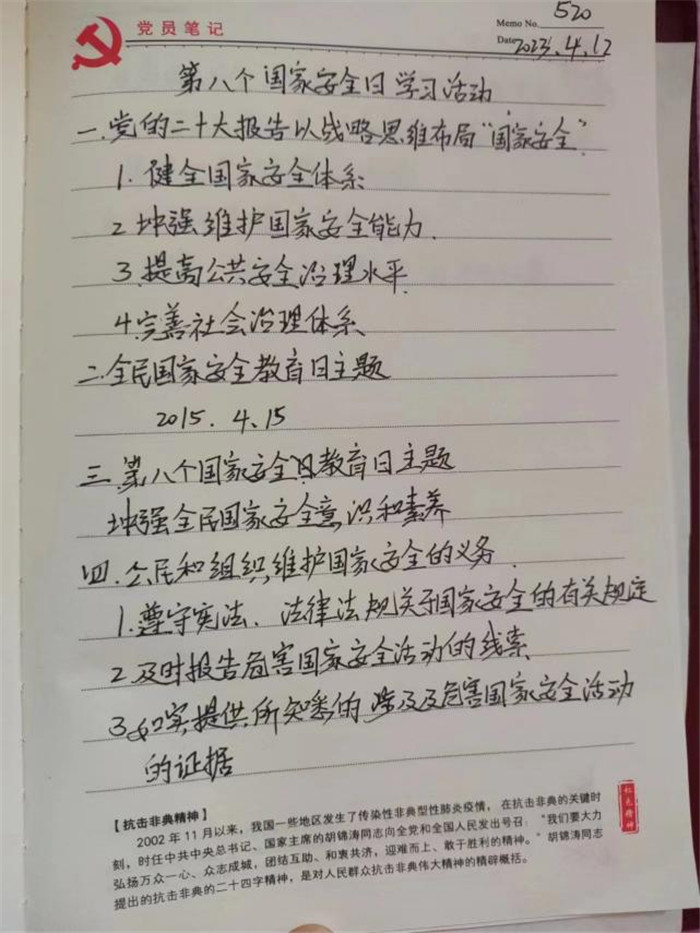 党员笔记
Memo No. 520
Date 2023.4.12
第八个国家安全日学习活动
一.党的二十大报告以战略思维布局"国家安全"
1.健全国家安全体系
2.增强维护国家安全能力.
3.提高公共安全治理水平
4.完善社会治理体系
二.全民国家安全教育日主题
2015.4.15
三.第八个国家安全教育日主题
增强全民国家安全意识和素养
四.公民和组织维护国家安全的义务.
1.遵守宪法、法律法规关于国家安全的有关规定
2.及时报告危害国家安全活动的线索
3.如实提供所知悉的涉及及危害国家安全活动
的证据
红色精神
【抗击非典精神】
2002年11月以来，我国一些地区发生了传染性非典型性肺炎疫情，在抗击非典的关键时
刻，时任中共中央总书记、国家主席的胡锦涛同志向全党和全国人民发出号召："我们要大力
弘扬万众一心、众志成城，团结互助、和衷共济，迎难而上、敢于胜利的精神。"胡锦涛同志
提出的抗击非典的二十四字精神，是对人民群众抗击非典伟大精神的精辟概括。